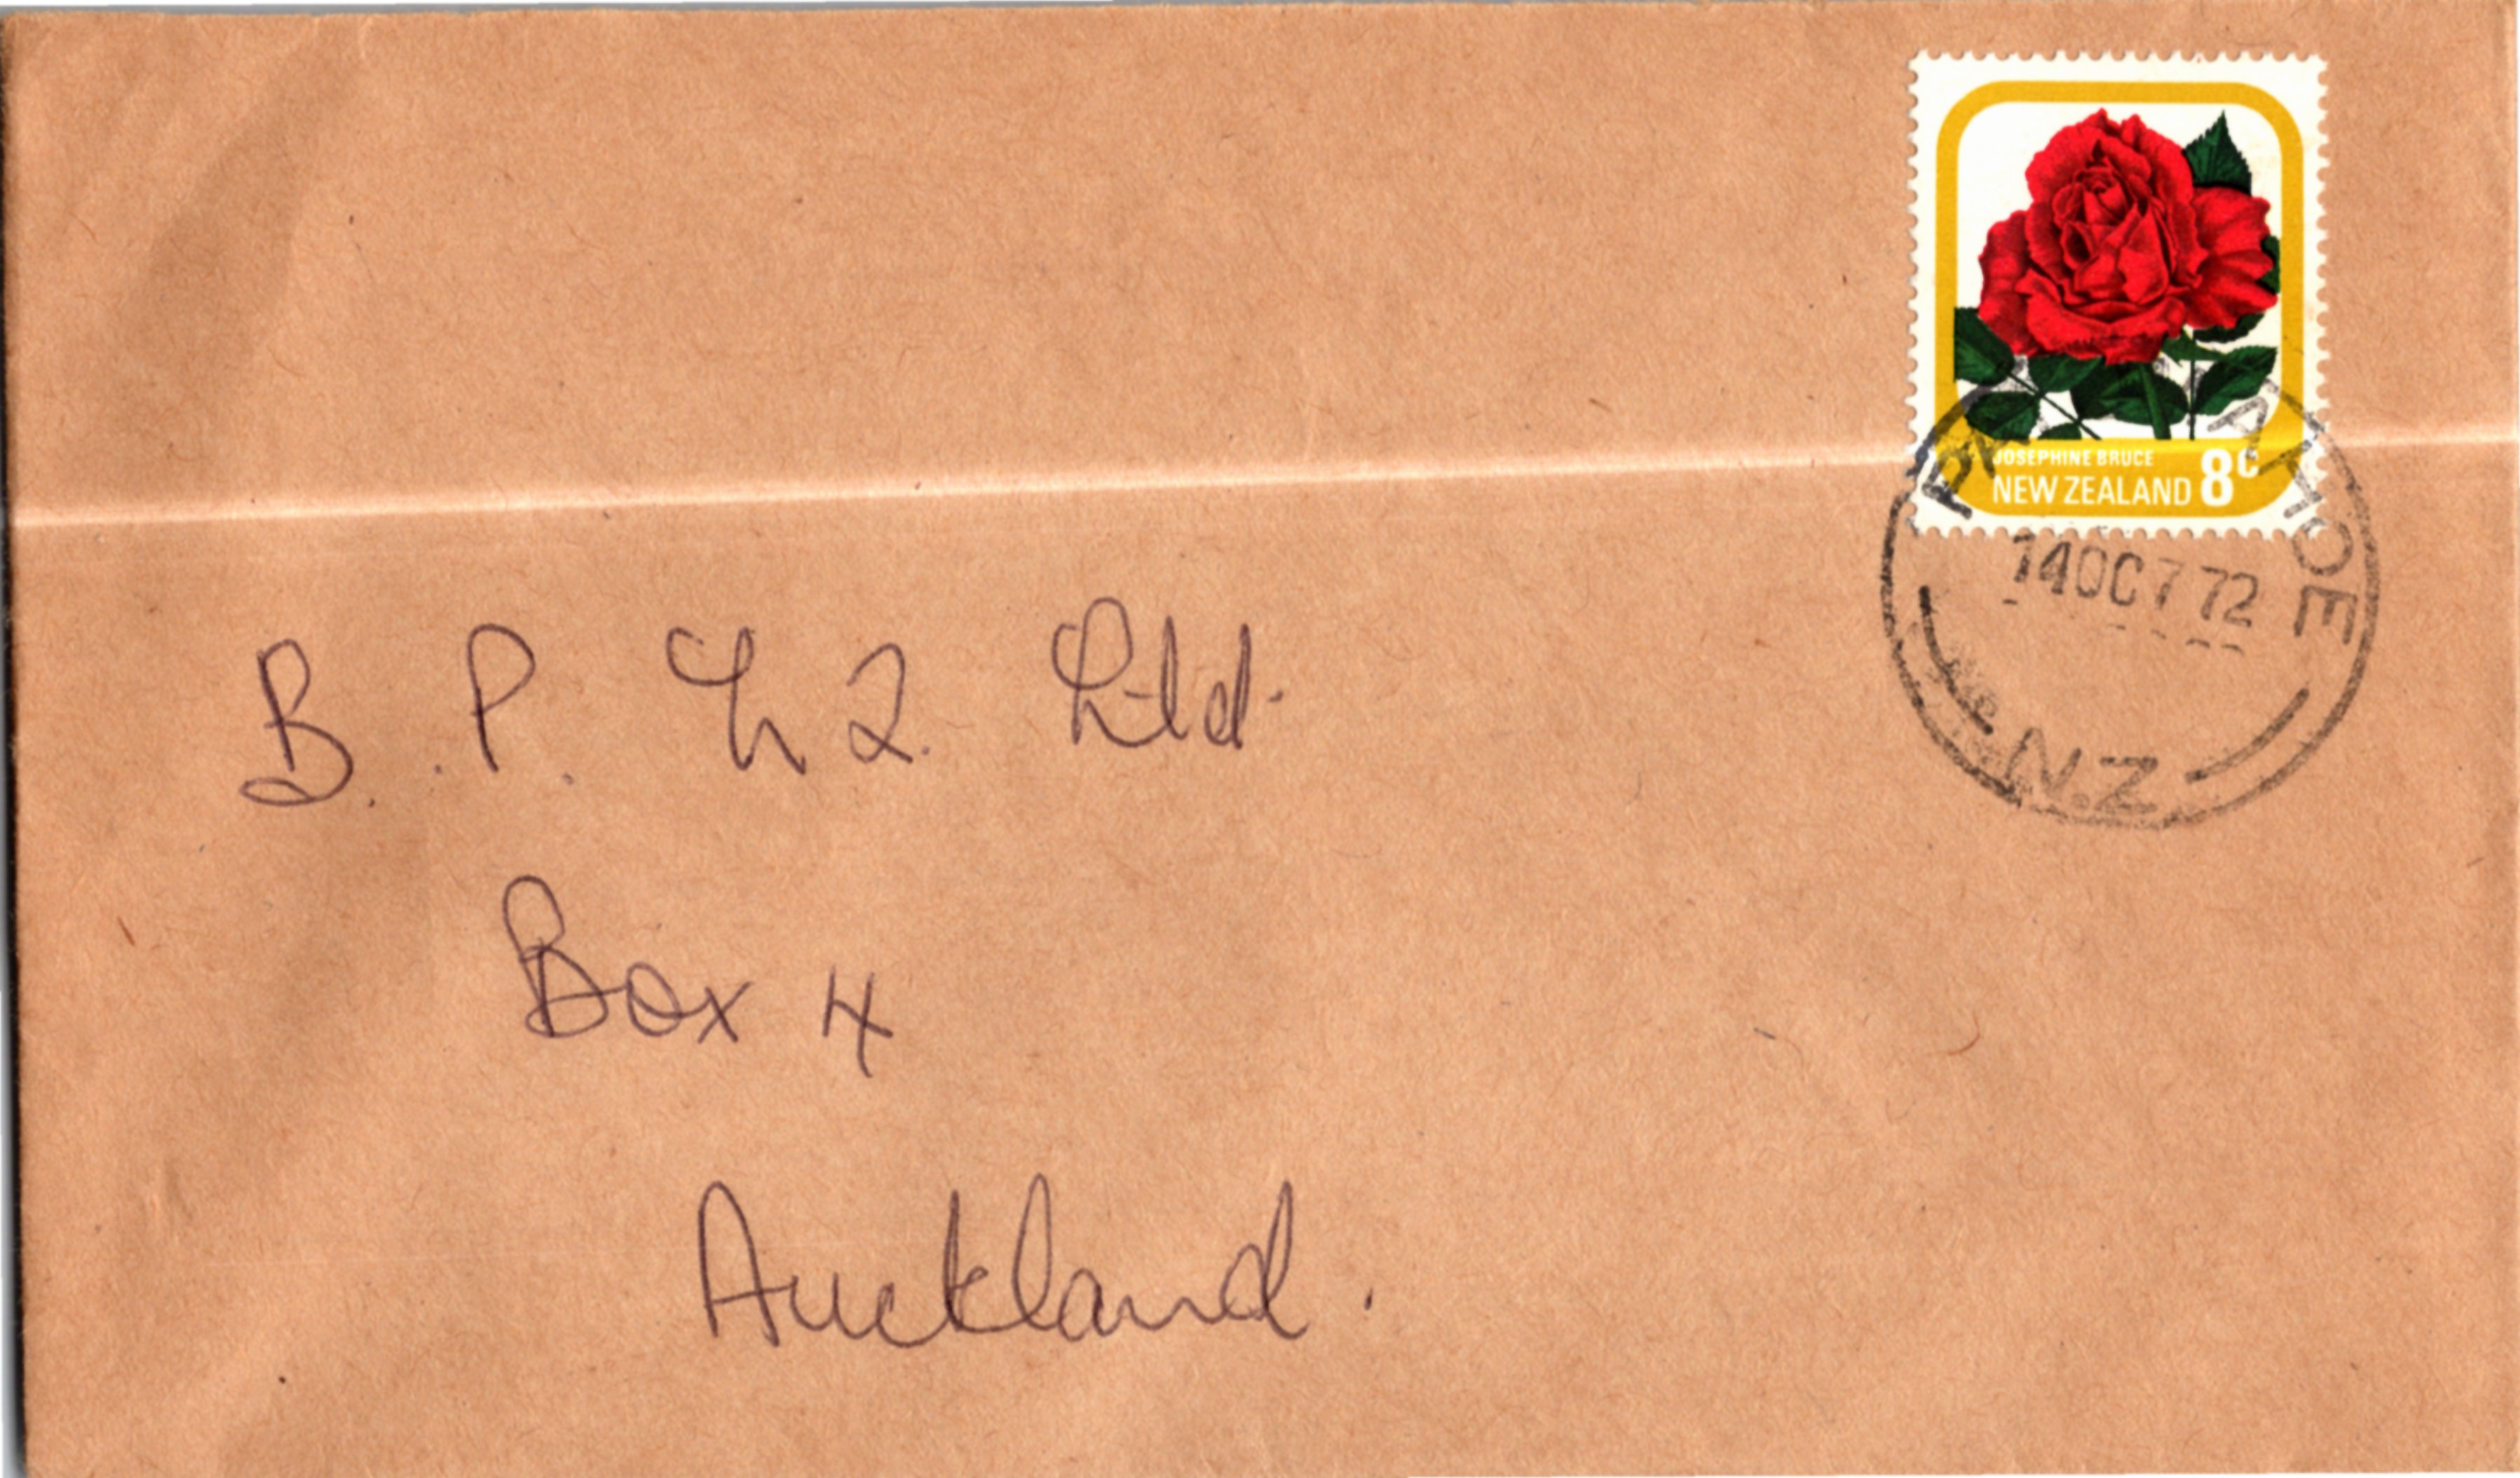 JOSEPHINE BRUCE
NEW ZEALAND 8c
14 OC 7 72
N.Z.
B. P. N Z. Ltd.
Box 4
Auckland.